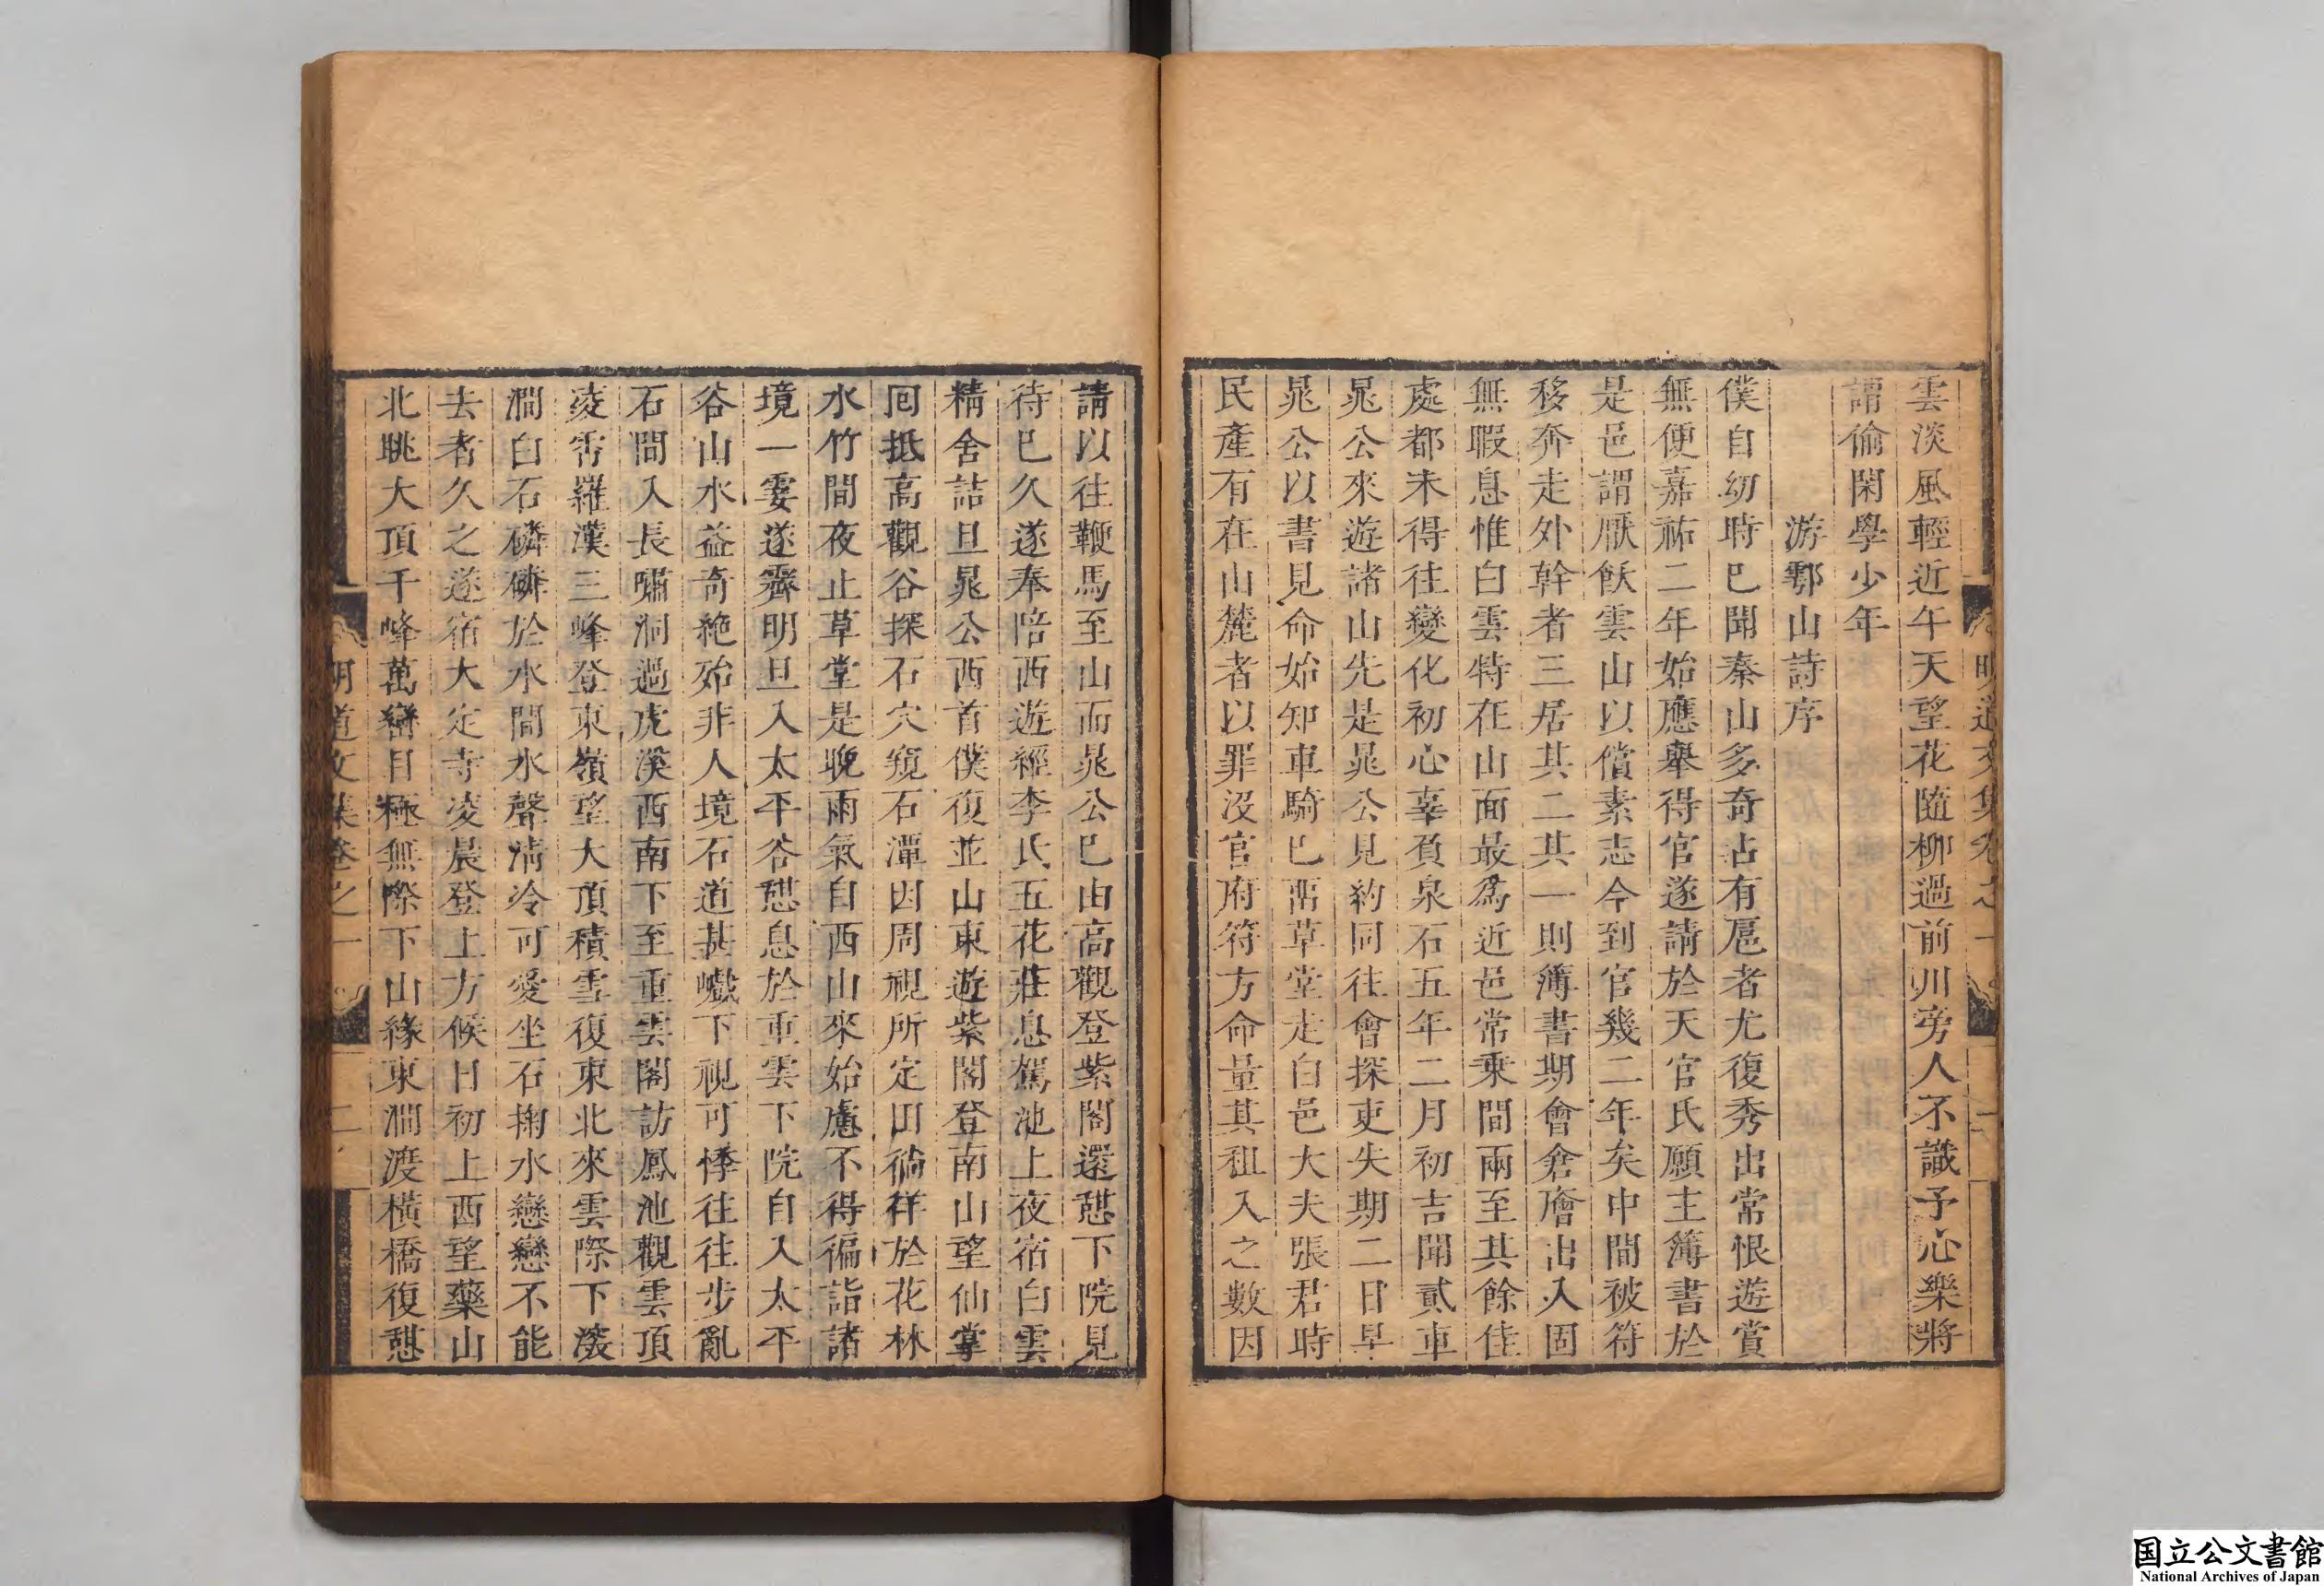 雲淡風輕近午天望花隨柳過前川旁人不識予心樂將
謂偷閑學少年
游鄠山詩序
僕自幼時已聞秦山多奇占有扈者尤復秀出常恨遊賞
無便嘉祐二年始應舉得官遂請於天官氏願主簿書於
是邑謂厭飫雲山以償素志今到官幾二年矣中間被符
移奔走外幹者三居其二其一則簿書期會倉廥出入固
無暇息惟白雲特在山面最爲近邑常乘間兩至其餘佳
處都未得往變化初心辜負泉石五年二月初吉聞貳車
晁公來遊諸山先是晁公見約同往會探吏失期二日早
晁公以書見命始知車騎已留草堂走白邑大夫張君時
民產有在山麓者以罪沒官府符方命量其租入之數因
明道文集卷之一
二
請以往鞭馬至山而晁公已由高觀登紫閣還憇下院見
待已久遂奉陪西遊經李氏五花莊息駕池上夜宿白雲
精舍詰旦晁公西首僕復並山東遊紫閣登南山望仙掌
囘抵高觀谷探石穴窺石潭因周視所定田徜徉於花林
水竹間夜止草堂是晚雨氣自西山來始慮不得徧詣諸
境一霎遂霽明旦入太平谷憇息於重雲下院自入太平
谷山水益奇絶殆非人境石道甚巇下視可悸往往步亂
石間入長嘯洞過虎溪西南下至重雲閣訪鳳池觀雲頂
凌霄羅漢三峰登東嶺望大頂積雪復東北來雲際下深
澗白石磷磷於水間水聲清泠可愛坐石掬水戀戀不能
去者久之遂宿大定寺凌晨登上方候日初上西望藥山
北眺大頂千峰萬巒目極無際下山緣東澗渡橫橋復憇
明道文集卷之一
二
国立公文書館
National Archives of Japan